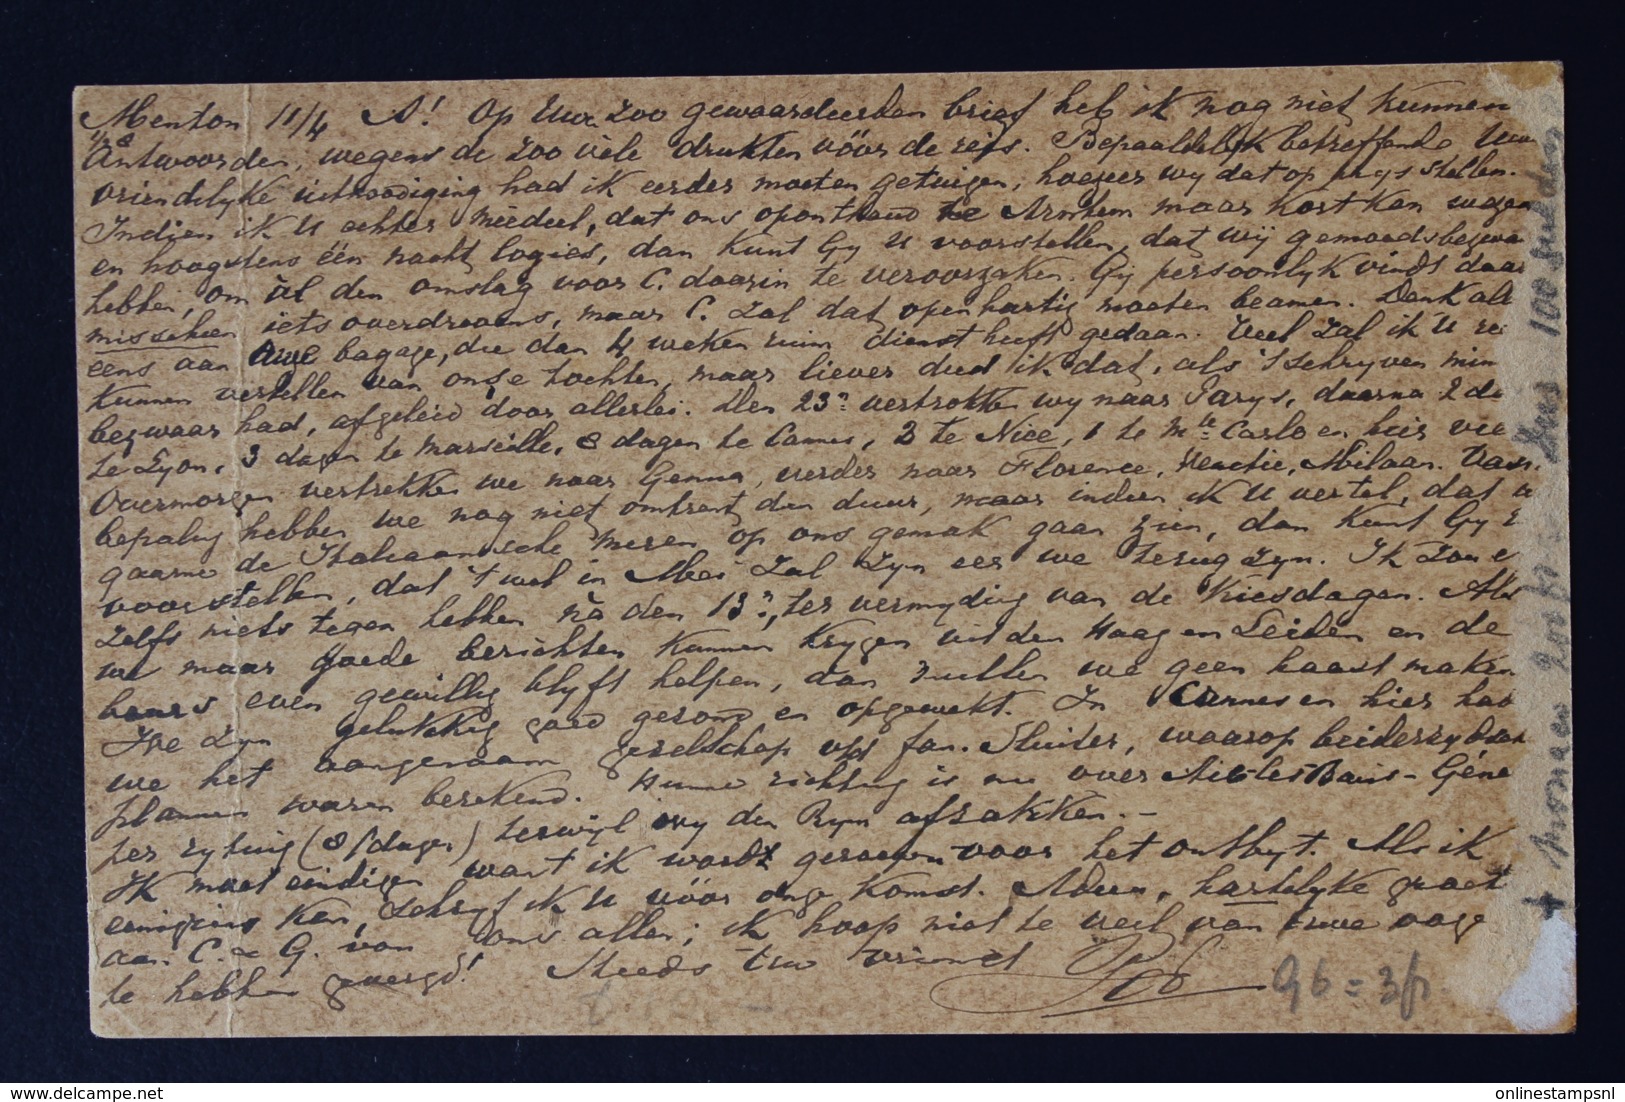 Menton 11/4 A! Op Uw zoo gewaardeerden brief heb ik nog niet kunnen
Antwoorden, wegens de zoo vele drukten vóór de reis. Bepaaldelyk betreffende Uwe
vriendelyke uitnoodiging had ik eerder moeten getuigen, hoezeer wy dat op prys stellen.
Indien ik U echter meedeel, dat ons oponthoud te Arnhem maar kort kan wezen
en hoogstens één nacht logies, dan kunt Gy U voorstellen, dat wij gemoedsbezwa
hebben, om àl den omslag voor C. daarin te veroorzaken. Gy persoonlyk vindt daar
misschien iets overdrevens, maar C. zal dat openhartig moeten beamen. Denk als
eens aan Uwe bagage, die dan 4 weken ruim dienst heeft gedaan. Veel zal ik U
kunnen vertellen van onze tochten, maar liever deed ik dat, als 't schryven min
bezwaar had, afgeleid door allerlei. Den 23n vertrokken wy naar Parys, daarna 2 da
te Lyon, 3 dagen te Marseille, 8 dagen te Cannes, 3 te Nice, 1 te Mte Carlo en hier
Overmorgen vertrekken we naar Genua, verder naar Florence, Venetie, Milaan. Van
bepaling hebben we nog niet omtrent den duur, maar indien ik U vertel, dat
gaarne de Italiaansche meren op ons gemak gaan zien, dan kunt Gy
voorstellen, dat 't wel in Mei zal zyn eer we terug zyn. Ik zou
zelfs niets tegen hebben nà den 13n, ter vermyding van de Kiesdagen. Als
we maar goede berichten kunnen krygen uit den Haag en Leiden en de
beurs even gewillig blyft helpen, dan zullen we geen haast maken
We zyn gelukkig goed gezond en opgewekt. In Cannes en hier had
we het aangenaam gezelschap v/d fam. Sluiter, waarop beiderzydsche
plannen waren berekend. Hunne richting is nu over Aix les Bains - Génè
per rytuig (8 dagen) terwyl wy den Ryn afzakken. -
Ik moet eindigen want ik word geroepen voor het ontbyt. Als ik
eenigzins kan, schryf ik U vóór onze komst. Adieu, hartelyke groet
aan C. & G. van ons allen; ik hoop niet te veel van Uwe oogen
te hebben gevergd! Steeds Uw vriend
96 = 3 fr.
onlinestampsnl